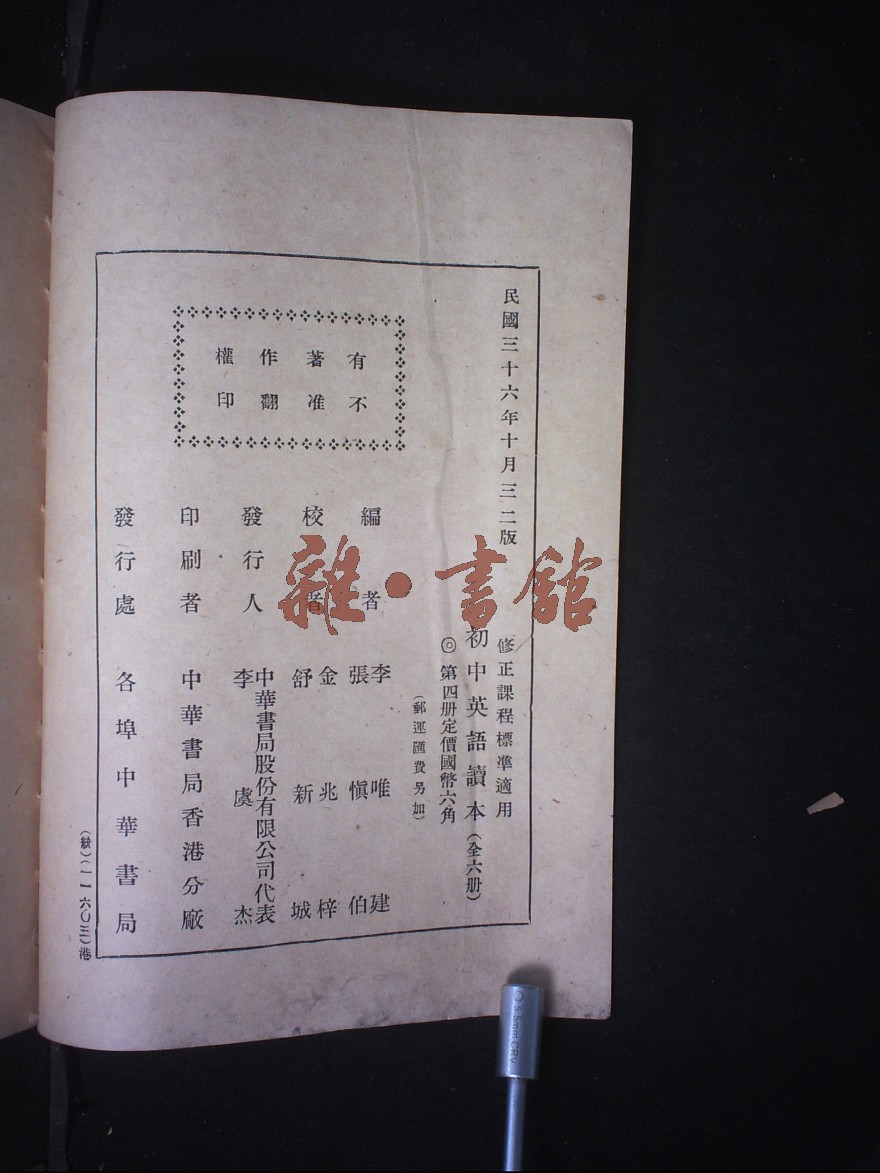 民國三十六年十月三二版
修正課程標準適用
初中英語讀本(全六册)
◎第四册定價國幣六角
(郵運匯費另加)
有著作權
不准翻印
編者 李唯建
張慎伯
校者 金兆梓
舒新城
發行人 中華書局股份有限公司代表
李虞杰
印刷者 中華書局香港分廠
發行處 各埠中華書局
(一一六〇三)港
雜·書館
5.5mm CRV